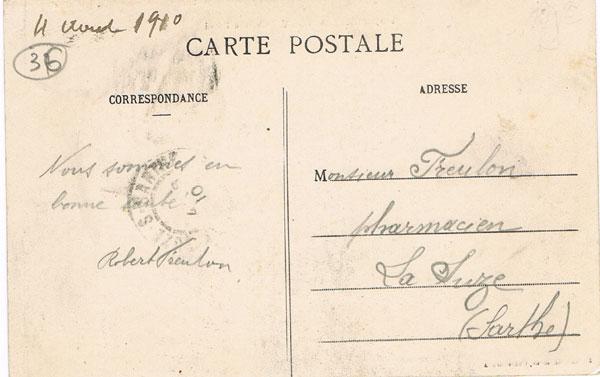 4 1910
36
CARTE POSTALE
CORRESPONDANCE
ADRESSE
Nous sommes en
bonne santé
Robert Treulon
Monsieur Treulon
pharmacien
La Suze
(Sarthe)